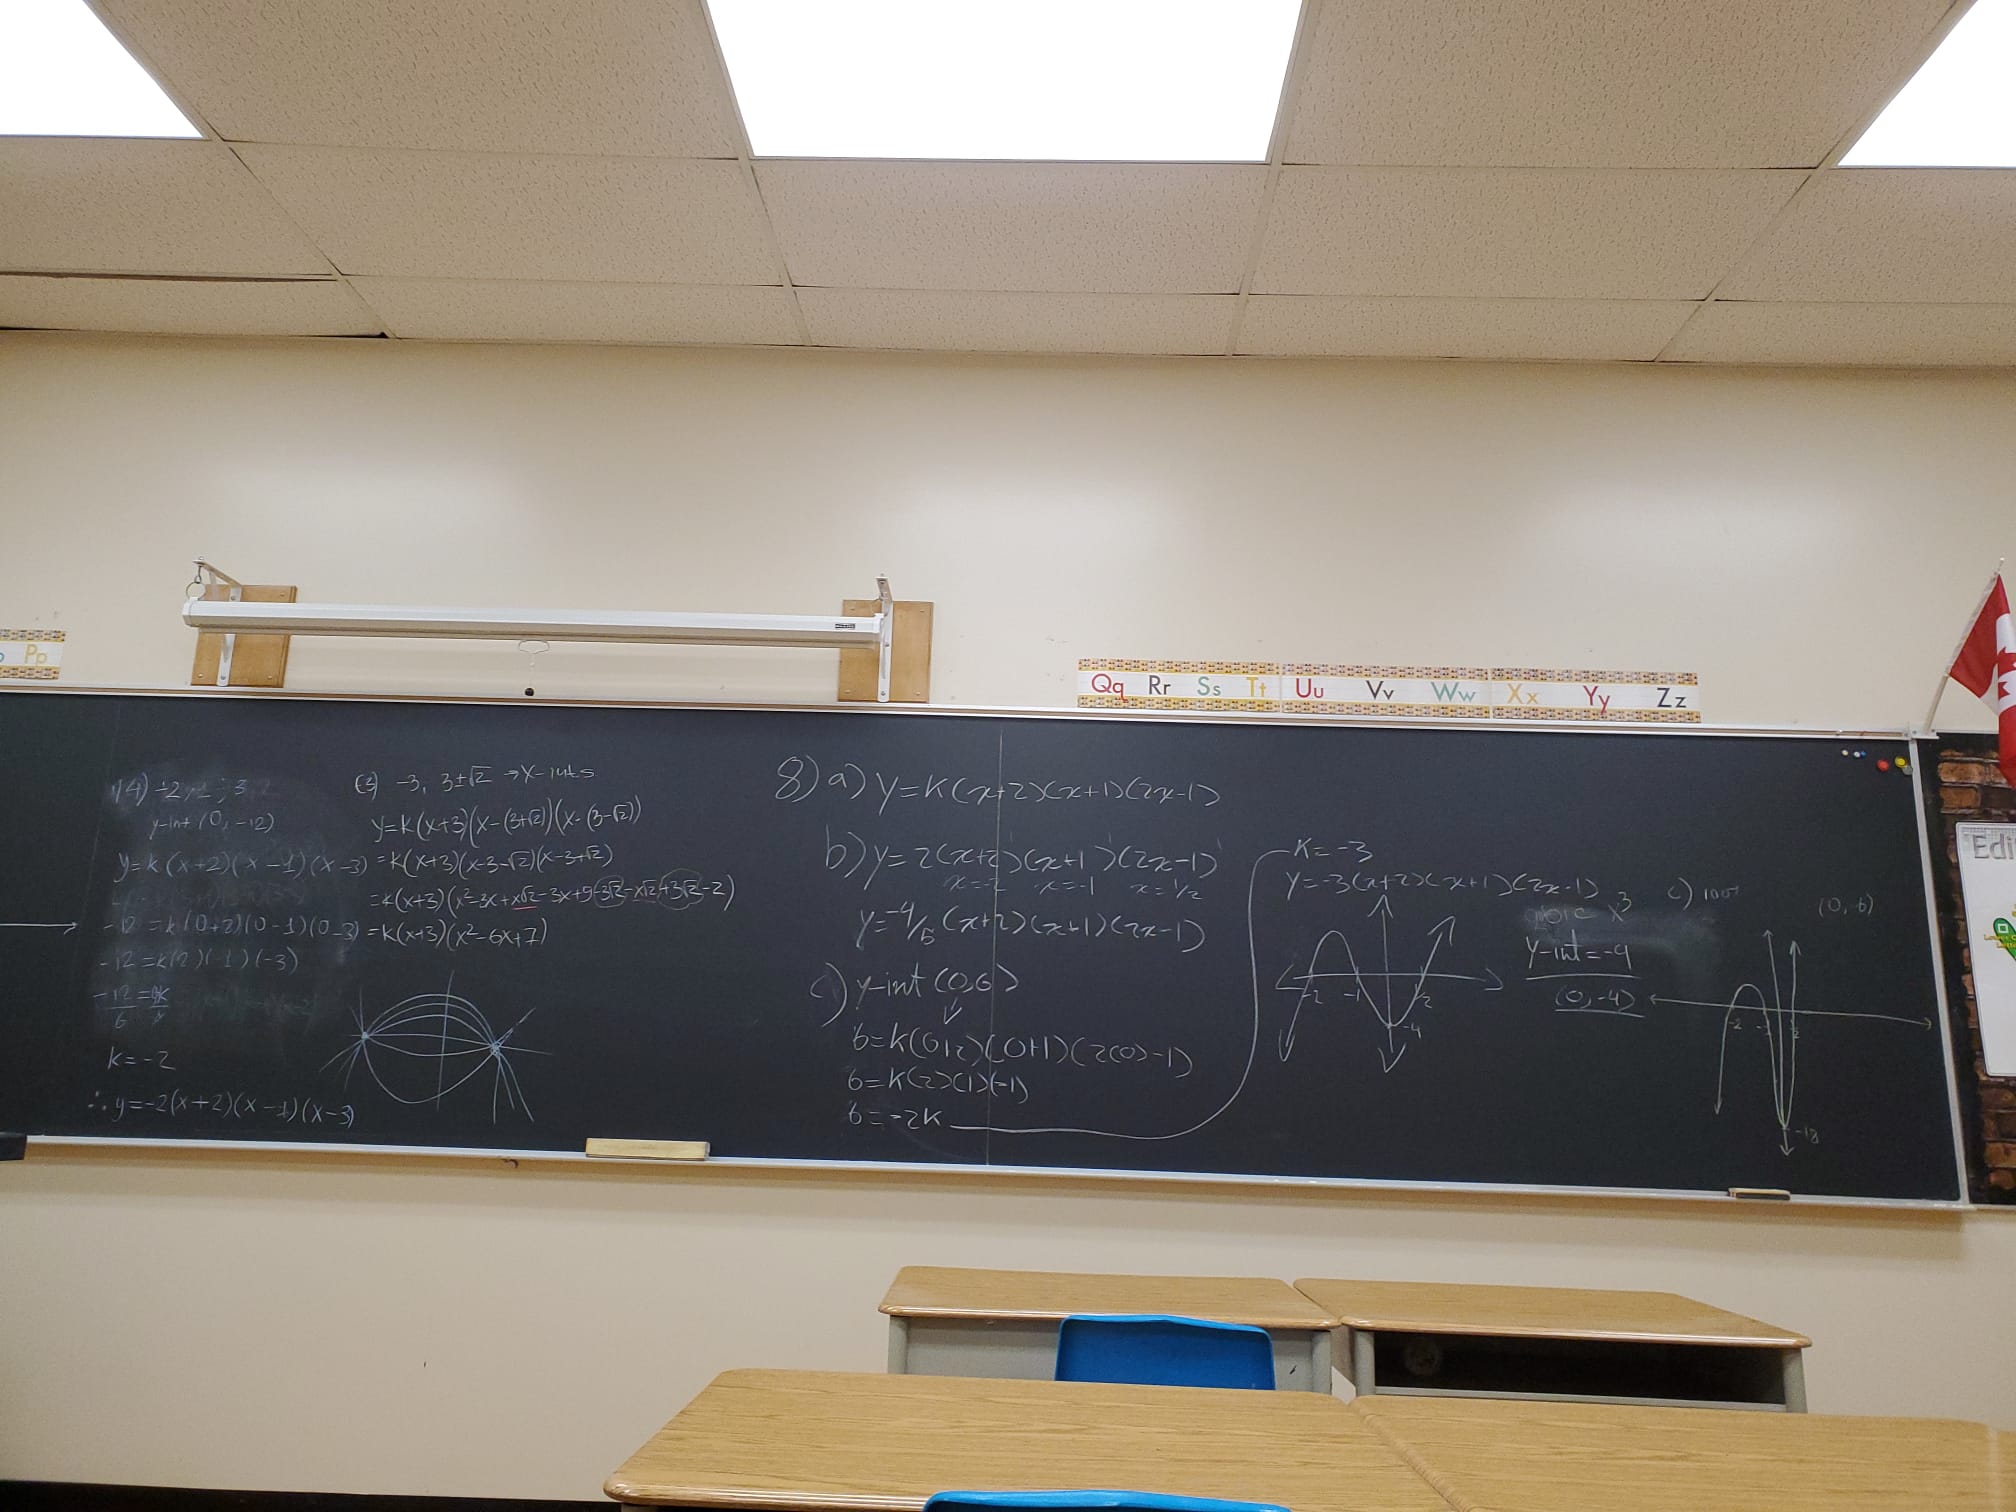 Pp
Qq Rr Ss Tt Uu Vv Ww Xx Yy Zz
14) -2, 1, 3
y-int (0, -12)
y=k(x+2)(x-1)(x-3)
-12=k(0+2)(0-1)(0-3)
-12=k(2)(-1)(-3)
-12=6k
6
k=-2
∴ y=-2(x+2)(x-1)(x-3)
-3, 3±√2 → x-ints
y=k(x+3)(x-(3+√2))(x-(3-√2))
=k(x+3)(x-3-√2)(x-3+√2)
=k(x+3)(x²-3x+x√2-3x+9-3√2-x√2+3√2-2)
=k(x+3)(x²-6x+7)
8) a) y=k(x+2)(x+1)(2x-1)
b) y=2(x+2)(x+1)(2x-1)
x=-2 x=-1 x=1/2
y=-4/5(x+2)(x+1)(2x-1)
c) y-int (0,6)
6=k(0+2)(0+1)(2(0)-1)
6=k(2)(1)(-1)
6=-2k
k=-3
y=-3(x+2)(x+1)(2x-1)
-2 -1 1/2
-4
x³
y-int=-4
(0,-4)
c)
(0,-6)
-2
-18
Edi